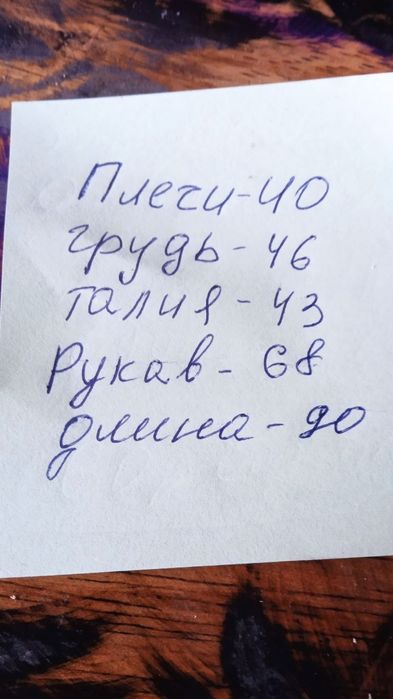 Плечи-40
грудь-46
талия-43
Рукав-68
длина-90